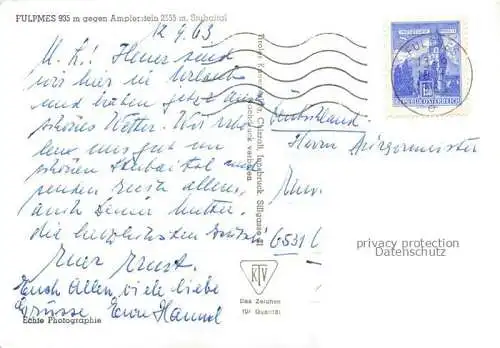 FULPMES 935 m gegen Ampferstein 2555 m, Stubaital
12.9.63
M. K.! Heuer sind
wir hier in Urlaub
und haben jetzt auch
schönes Wetter. Wir
uns gut im
schönen Stubaital und
senden Euch allen,
auch Deiner Mutter
die herzlichsten Grüße!
Euer Ernst.
Euch Allen, viele liebe
Grüsse Eure Hannel
Echte Photographie
Tiroler Kunstverlag Chizzali, Innsbruck, Sillgasse 21
Nachdruck verboten
KTV
Das Zeichen
für Qualität
FULPMES
REPUBLIK ÖSTERREICH
Deutschland
Herrn Bürgermeister
6531
privacy protection
Datenschutz